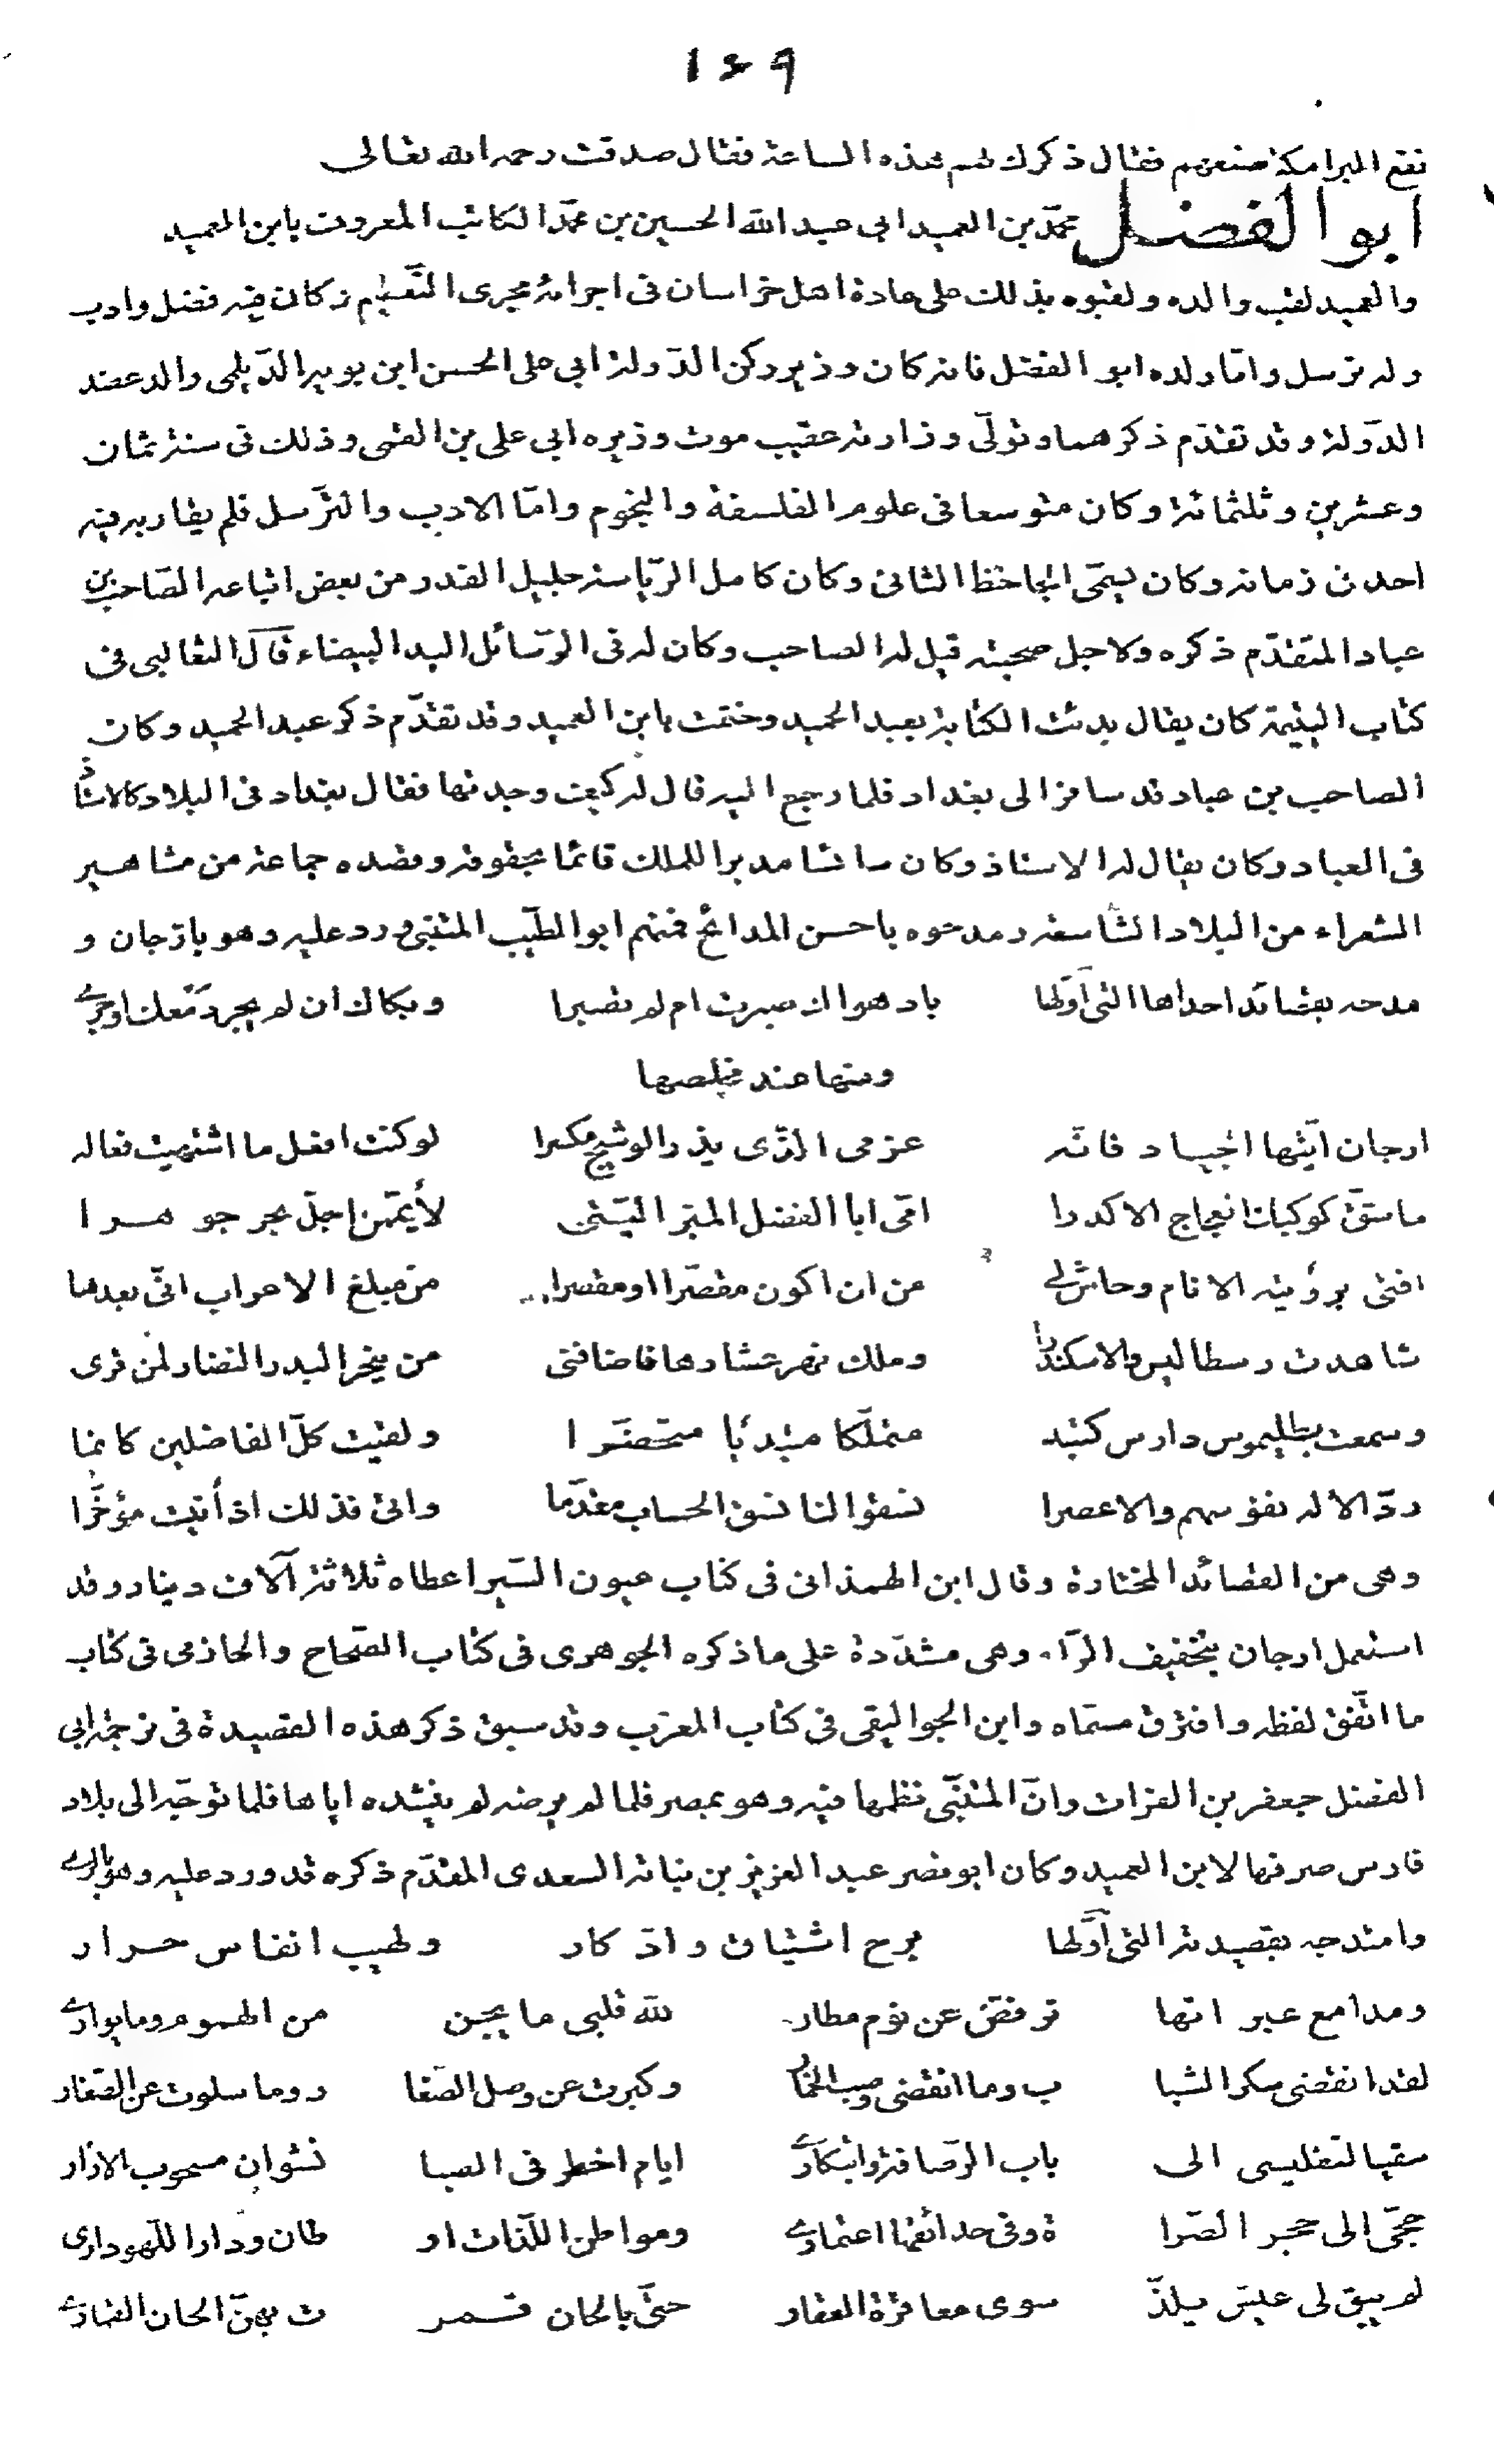 ١٤٩
نفع البرامكة صنعهم فقال ذكرك لهم هذه الساعة فقال صدقت رحمه الله تعالى
ابو الفضل محمّد بن العميد ابي عبد الله الحسين بن محمّد الكاتب المعروف بابن العميد
والعميد لقب والده ولقبوه بذلك على عادة اهل خراسان فى اجرائه مجرى التّعظيم وكان فيه فضل وادب
وله ترسل وامّا ولده ابو الفضل فانه كان وزير ركن الدّولة ابي على الحسن ابن بويه الدّيلمى والد عضد
الدّولة وقد تقدّم ذكرهما وتولّى وزارته عقيب موت وزيره ابي على بن القمى وذلك فى سنة ثمان
وعشرين وثلثمائة وكان متوسعا فى علوم الفلسفة والنجوم وامّا الادب والترّسل فلم يقاربه فيه
احد فى زمانه وكان يسمّى الجاحظ الثانى وكان كامل الرّياسة جليل القدر من بعض اتباعه الصّاحب بن
عباد المتقدّم ذكره ولاجل صحبته قيل له الصاحب وكان له فى الرّسائل اليد البيضاء قال الثعالبى فى
كتاب اليتيمة كان يقال بدئت الكتابة بعبد الحميد وختمت بابن العميد وقد تقدّم ذكر عبد الحميد وكان
الصاحب بن عباد قد سافر الى بغداد فلما رجع اليه قال له كيف وجدتها فقال بغداد فى البلاد كالاستاذ
فى العباد وكان يقال له الاستاذ وكان سائسا مدبرا للملك قائما بحقوقه وقصده جماعة من مشاهير
الشعراء من البلاد الشّاسعة ومدحوه باحسن المدائح فمنهم ابو الطيّب المتنبى ورد عليه وهو بارّجان و
مدحه بقصائد احداها التى اوّلها باد هواك صبرت ام لم تصبرا وبكاك ان لم يجر دمعك او جرى
ومنها عند مخلصها
ارجان ايّتها الجياد فانّه عزمى الذّى يذر الوشيج مكسرا لو كنت افعل ما اشتهيت فعاله
ما شقّ كوكبك العجاج الاكدرا امّى ابا الفضل المبرّ اليّتى لأيمّمن اجلّ بحر جوهرا
افتى برؤيته الانام وحاش لى من ان اكون مقصّرا او مقصرا من مبلغ الاعراب انّى بعدها
شاهدت رسطاليس والاسكندرا ومللت نحر عشارها فاضافنى من ينحر البدر النضار لمن قرى
وسمعت بطليموس دارس كتبه متملّكا متبدّيا متحضّرا ولقيت كلّ الفاضلين كانما
ردّ الاله نفوسهم والاعصرا نسقوا لنا نسق الحساب مقدّما واتى فذلك اذ أتيت مؤخّرا
وهى من القصائد المختارة وقال ابن الهمذانى فى كتاب عيون السّير اعطاه ثلاثة آلاف دينار وقد
استعمل ارجان بتخفيف الرّاء وهى مشدّدة على ما ذكره الجوهرى فى كتاب الصّحاح والحازمى فى كتاب
ما اتّفق لفظه وافترق مسمّاه وابن الجواليقى فى كتاب المعرّب وقد سبق ذكر هذه القصيدة فى ترجمة ابى
الفضل جعفر بن الفرات وانّ المتنبّى نظمها فيه وهو بمصر فلما لم يرضه لم ينشده اياها فلما توجّه الى بلاد
فارس صرفها لابن العميد وكان ابو نصر عبد العزيز بن نباتة السعدى المقدّم ذكره قد ورد عليه وهو بالرى
وامتدحه بقصيدته التى اوّلها برح اشتياق وادّكار ولهيب انفاس حرار
ومدامع عبراتها ترفضّ عن نوم مطار لله قلبى ما يجن من الهموم وما يوارى
لقد انقضى سكر الشبا ب وما انقضى وصب الخمار وكبرت عن وصل الصّغا ر وما سلوت عن الصّغار
سقيا لتغليسى الى باب الرّصافة وابتكارى ايام اخطر فى الصبا نشوان مسحوب الازار
حجّى الى حجر الصّرا ة وفى حدائقها اعتمارى ومواطن اللّذات او طانى ودار اللّهو دارى
لم يبق لى عيش يلذّ سوى معاقرة العقار حتّى بالحان قمر ت بهنّ الحان القمارى